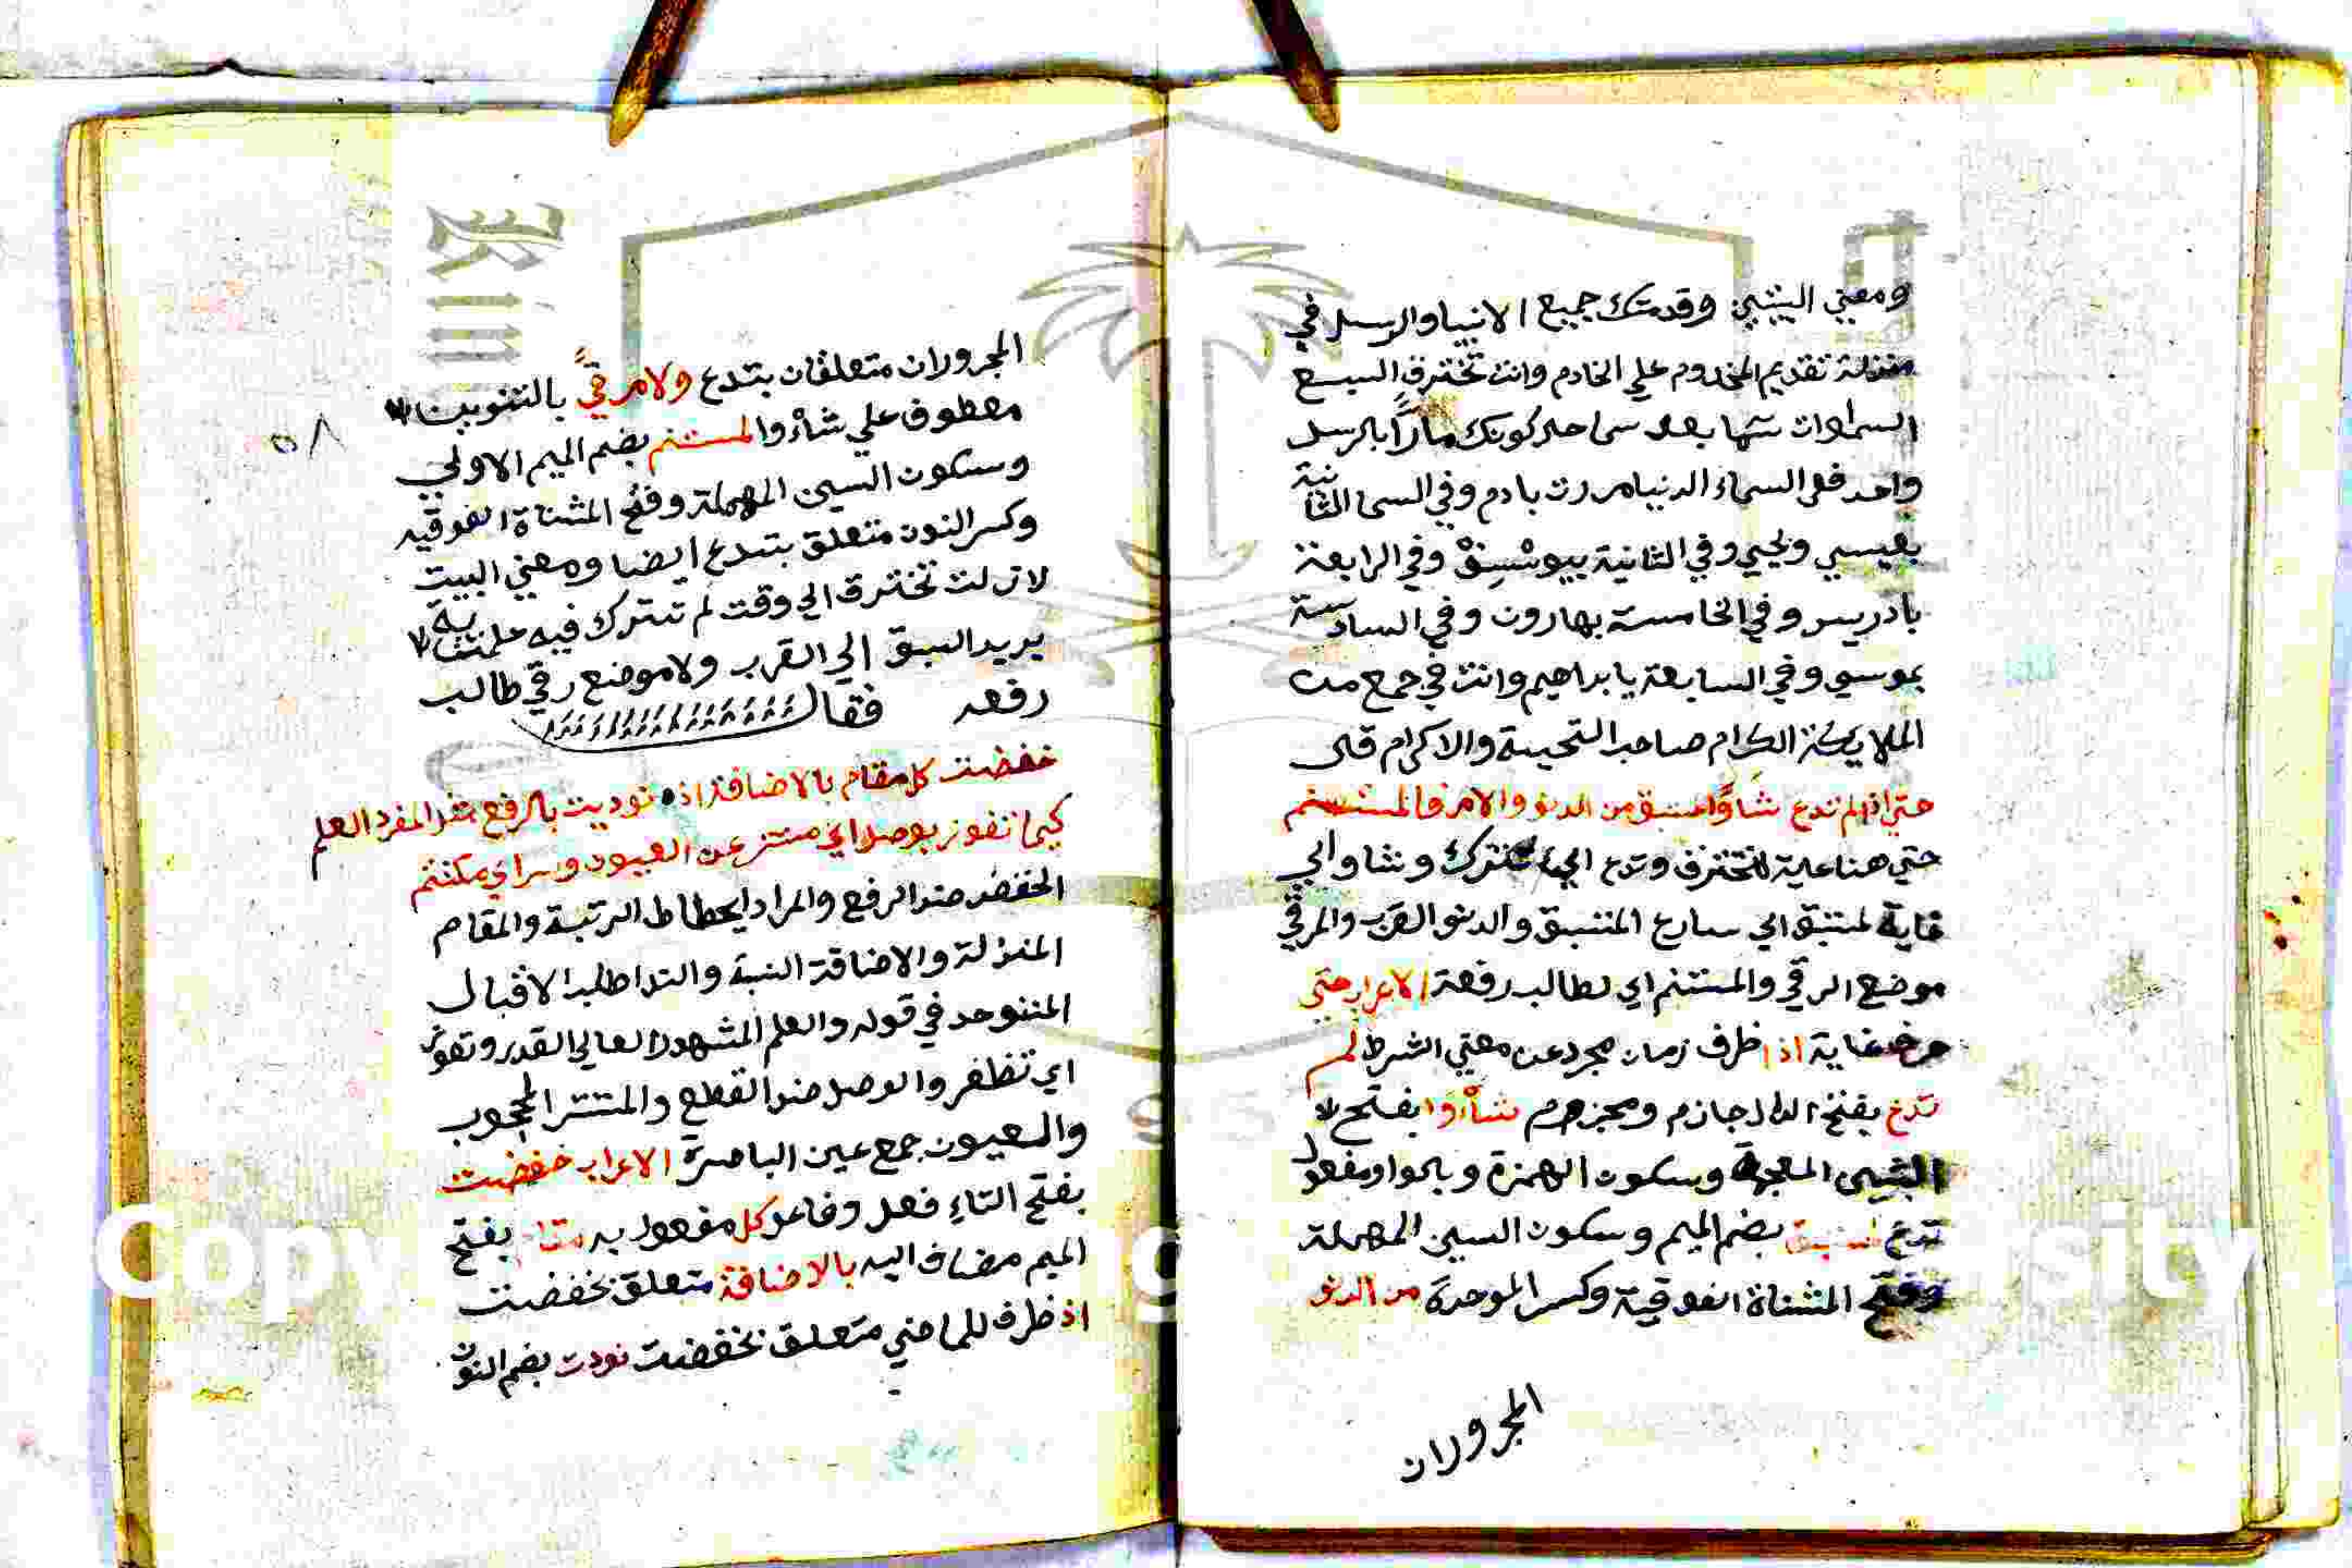 ومعني البيتين وقدمتك جميع الانبيا والرسل في
منزلة تقديم المخدوم علي الخادم وانت تخترق السبع
السماوات سما بعد سما حلد كونك مارًا بالرسل
واحد فلي السماء الدنيا مررت بادم وفي السما الثانية
بعيسي ويحيي وفي الثانية بيوسف وفي الرابعة
بادريس وفي الخامسة بهارون وفي السادسة
بموسي وفي السابعة يابراهيم وانت في جمع من
الملايكة الكرام صاحب التحيية والاكرام قال
حتي اذا لم تدع شأوا لمستبق من الدنو ولا مرقا لمستنم
حتي هنا غاية لتخترق وتدع اي تترك وشاو اي
غاية لمستبق اي سارع المستبق والدنو القرب والمرقي
موضع الرقي والمستنم اي لطالب رفعة الاعراب حتي
حرف غاية اذا ظرف زمان مجرد عن معني الشرط لم
تدع بفتح الدال جازم ومجزوم شأوا بفتح
الشين المعجمة وسكون الهمزة وبالواو مفعول
تدع لمستبق بضم الميم وسكون السين المهملة
وفتح المثناة الفوقية وكسر الموحدة من الدنو
المجرولان
٥٨
المجرولان متعلقان بتدع ولا مرقيً بالتنوين
معطوف علي شأوا لمستنم بضم الميم الاولي
وسكون السين المهملة وفتح المثناة الفوقيه
وكسر النون متعلق بتدع ايضا ومعني البيت
لا زلت تخترق الي وقت لم تترك فيه غاية
يريد السبق الي القرب ولا موضع رقي طالب
رفعه فقال
خفضت كل مقام بالاضافة اذ نوديت بالرفع مثل المفرد العلم
كيما تفوز بوصل اي مستتر عن العيون وسر اي مكتتم
الخفض ضد الرفع والمراد ايحطاط الرتبة والمقام
المنزلة والاضافة النسبة والندا طلب الاقبال
المتوحد في قوله والعلم المشهود العالي القدر وتفوز
اي تظفر والوصل ضد القطع والمستتر المحجوب
والعيون جمع عين الباصرة الاعراب خفضت
بفتح التاء فعل وفاعل كل مفعول به مقام بفتح
الميم مضاف اليه بالاضافة متعلق بخفضت
اذ ظرف للماضي متعلق بخفضت نودت بضم النون